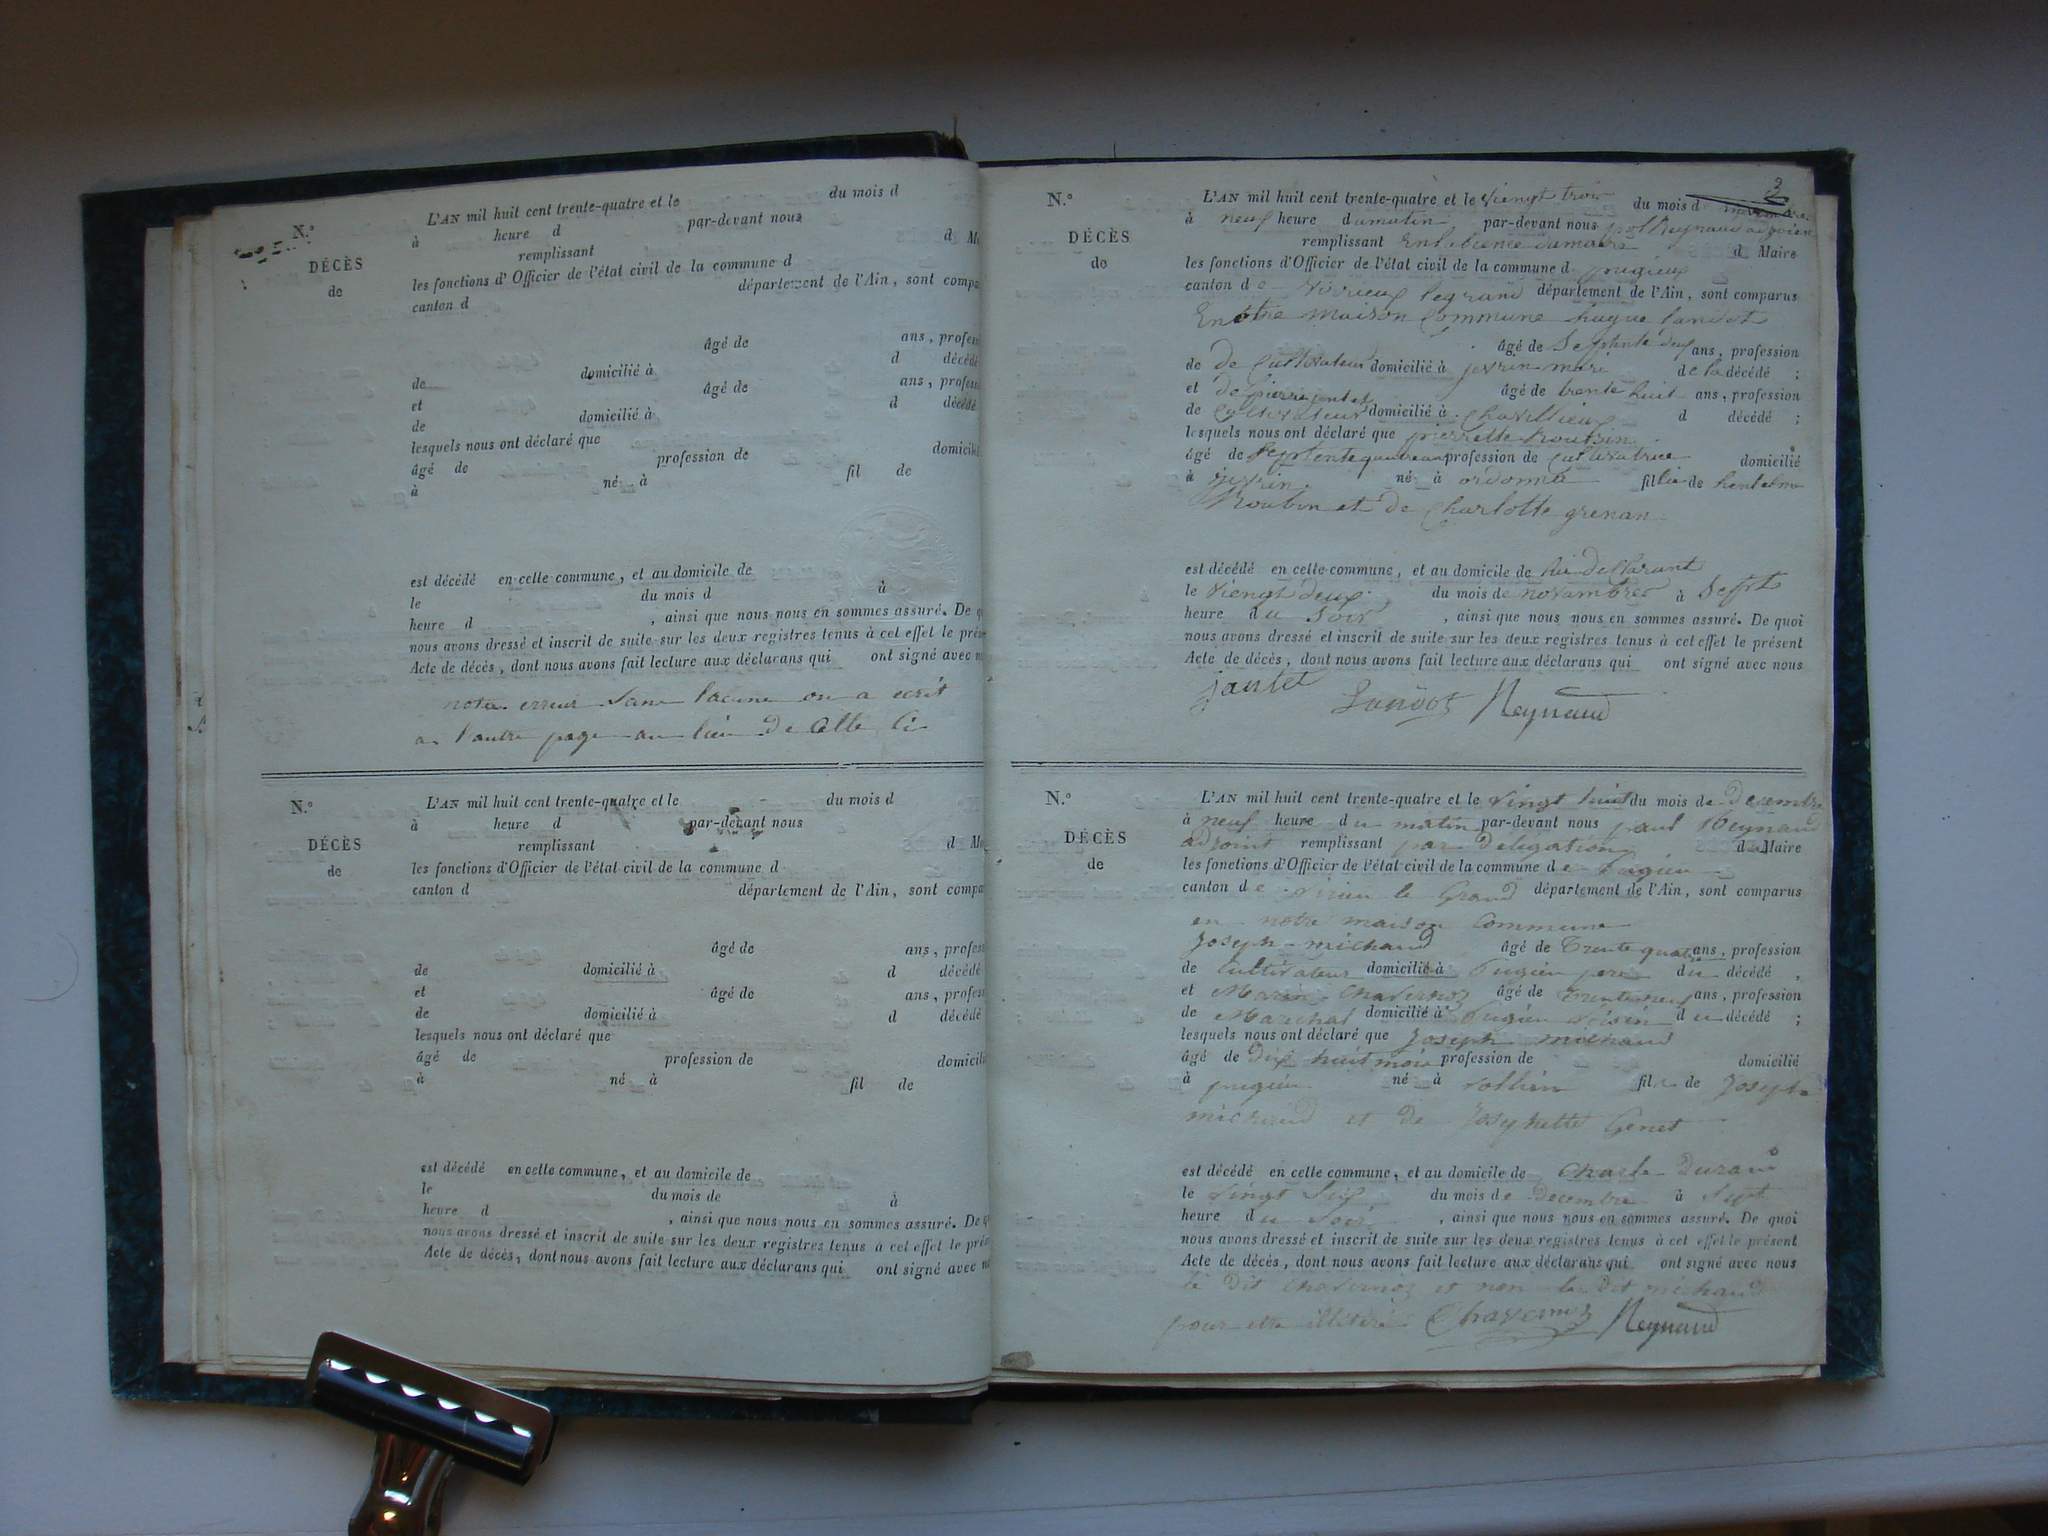 N.°
DÉCÈS
de
L'AN mil huit cent trente-quatre et le du mois d
à heure d par-devant nous
remplissant d M
les fonctions d'Officier de l'état civil de la commune d
canton d département de l'Ain, sont compa
âgé de ans, profess
de domicilié à d décédé
et âgé de ans, profess
de domicilié à d décédé
lesquels nous ont déclaré que
âgé de profession de domicilié
à né à fil de
est décédé en cette commune, et au domicile de
le du mois d à
heure d , ainsi que nous nous en sommes assuré. De q
nous avons dressé et inscrit de suite sur les deux registres tenus à cet effet le prés
Acte de décès, dont nous avons fait lecture aux déclarans qui ont signé avec n
nota erreur sans lacune on a ecrit
a l'autre page au lieu de celle ci
N.°
DÉCÈS
de
L'AN mil huit cent trente-quatre et le du mois d
à heure d par-devant nous
remplissant d M
les fonctions d'Officier de l'état civil de la commune d
canton d département de l'Ain, sont compa
âgé de ans, profess
de domicilié à d décédé
et âgé de ans, profess
de domicilié à d décédé
lesquels nous ont déclaré que
âgé de profession de domicili
à né à fil de
est décédé en cette commune, et au domicile de
le du mois de à
heure d , ainsi que nous nous en sommes assuré. De q
nous avons dressé et inscrit de suite sur les deux registres tenus à cet effet le prés
Acte de décès, dont nous avons fait lecture aux déclarans qui ont signé avec n
3
N.°
DÉCÈS
de
L'AN mil huit cent trente-quatre et le viengt trois du mois d
à neuf heure du matin par-devant nous pol Reynaud
remplissant en labsence du maire d Maire
les fonctions d'Officier de l'état civil de la commune d pugieux
canton de virieux legrand département de l'Ain, sont comparus
En otre maison Commune hugue landot
âgé de Septente deux ans, profession
de de Cultivateur domicilié à jevrin mari de la décédé ;
et de pierre jentet âgé de trente huit ans, profession
de Cultivateur domicilié à Chavillieux d décédé ;
lesquels nous ont déclaré que pierrette Roubin
âgé de Septente quatre an profession de Cultivatrice domicilié
à jevrin né à ordonnas fillie de
Roubin et de Charlotte grenan
est décédé en cette commune, et au domicile de
le viengt deux du mois de novambres à Sept
heure du Soir , ainsi que nous nous en sommes assuré. De quoi
nous avons dressé et inscrit de suite sur les deux registres tenus à cet effet le présent
Acte de décès, dont nous avons fait lecture aux déclarans qui ont signé avec nous
jantet Landot Reynaud
N.°
DÉCÈS
de
L'AN mil huit cent trente-quatre et le vingt huit du mois de Decembre
à neuf heure du matin par-devant nous paul Reynaud
adjoint remplissant par Délégation d Maire
les fonctions d'Officier de l'état civil de la commune de Pugieu
canton de virieu le Grand département de l'Ain, sont comparus
en notre maison Commune
Joseph michaud âgé de Trente quatre ans, profession
de Cultivateur domicilié à Pugieu pere du décédé ,
et Marin Chavernoz âgé de Trente neuf ans, profession
de Marechal domicilié à Pugieu voisin du décédé ;
lesquels nous ont déclaré que Joseph michaud
âgé de Dix huit mois profession de domicilié
à pugieu né à rollien fil de Joseph
michaud et de Josephette Genet
est décédé en cette commune, et au domicile de Charle Durand
le vingt Six du mois de Decembre à Sept
heure du Soir , ainsi que nous nous en sommes assuré. De quoi
nous avons dressé et inscrit de suite sur les deux registres tenus à cet effet le présent
Acte de décès, dont nous avons fait lecture aux déclarans qui ont signé avec nous
le Dit Chavernoz et non le Dit michaud
pour etre illiteré Chavernoz Reynaud